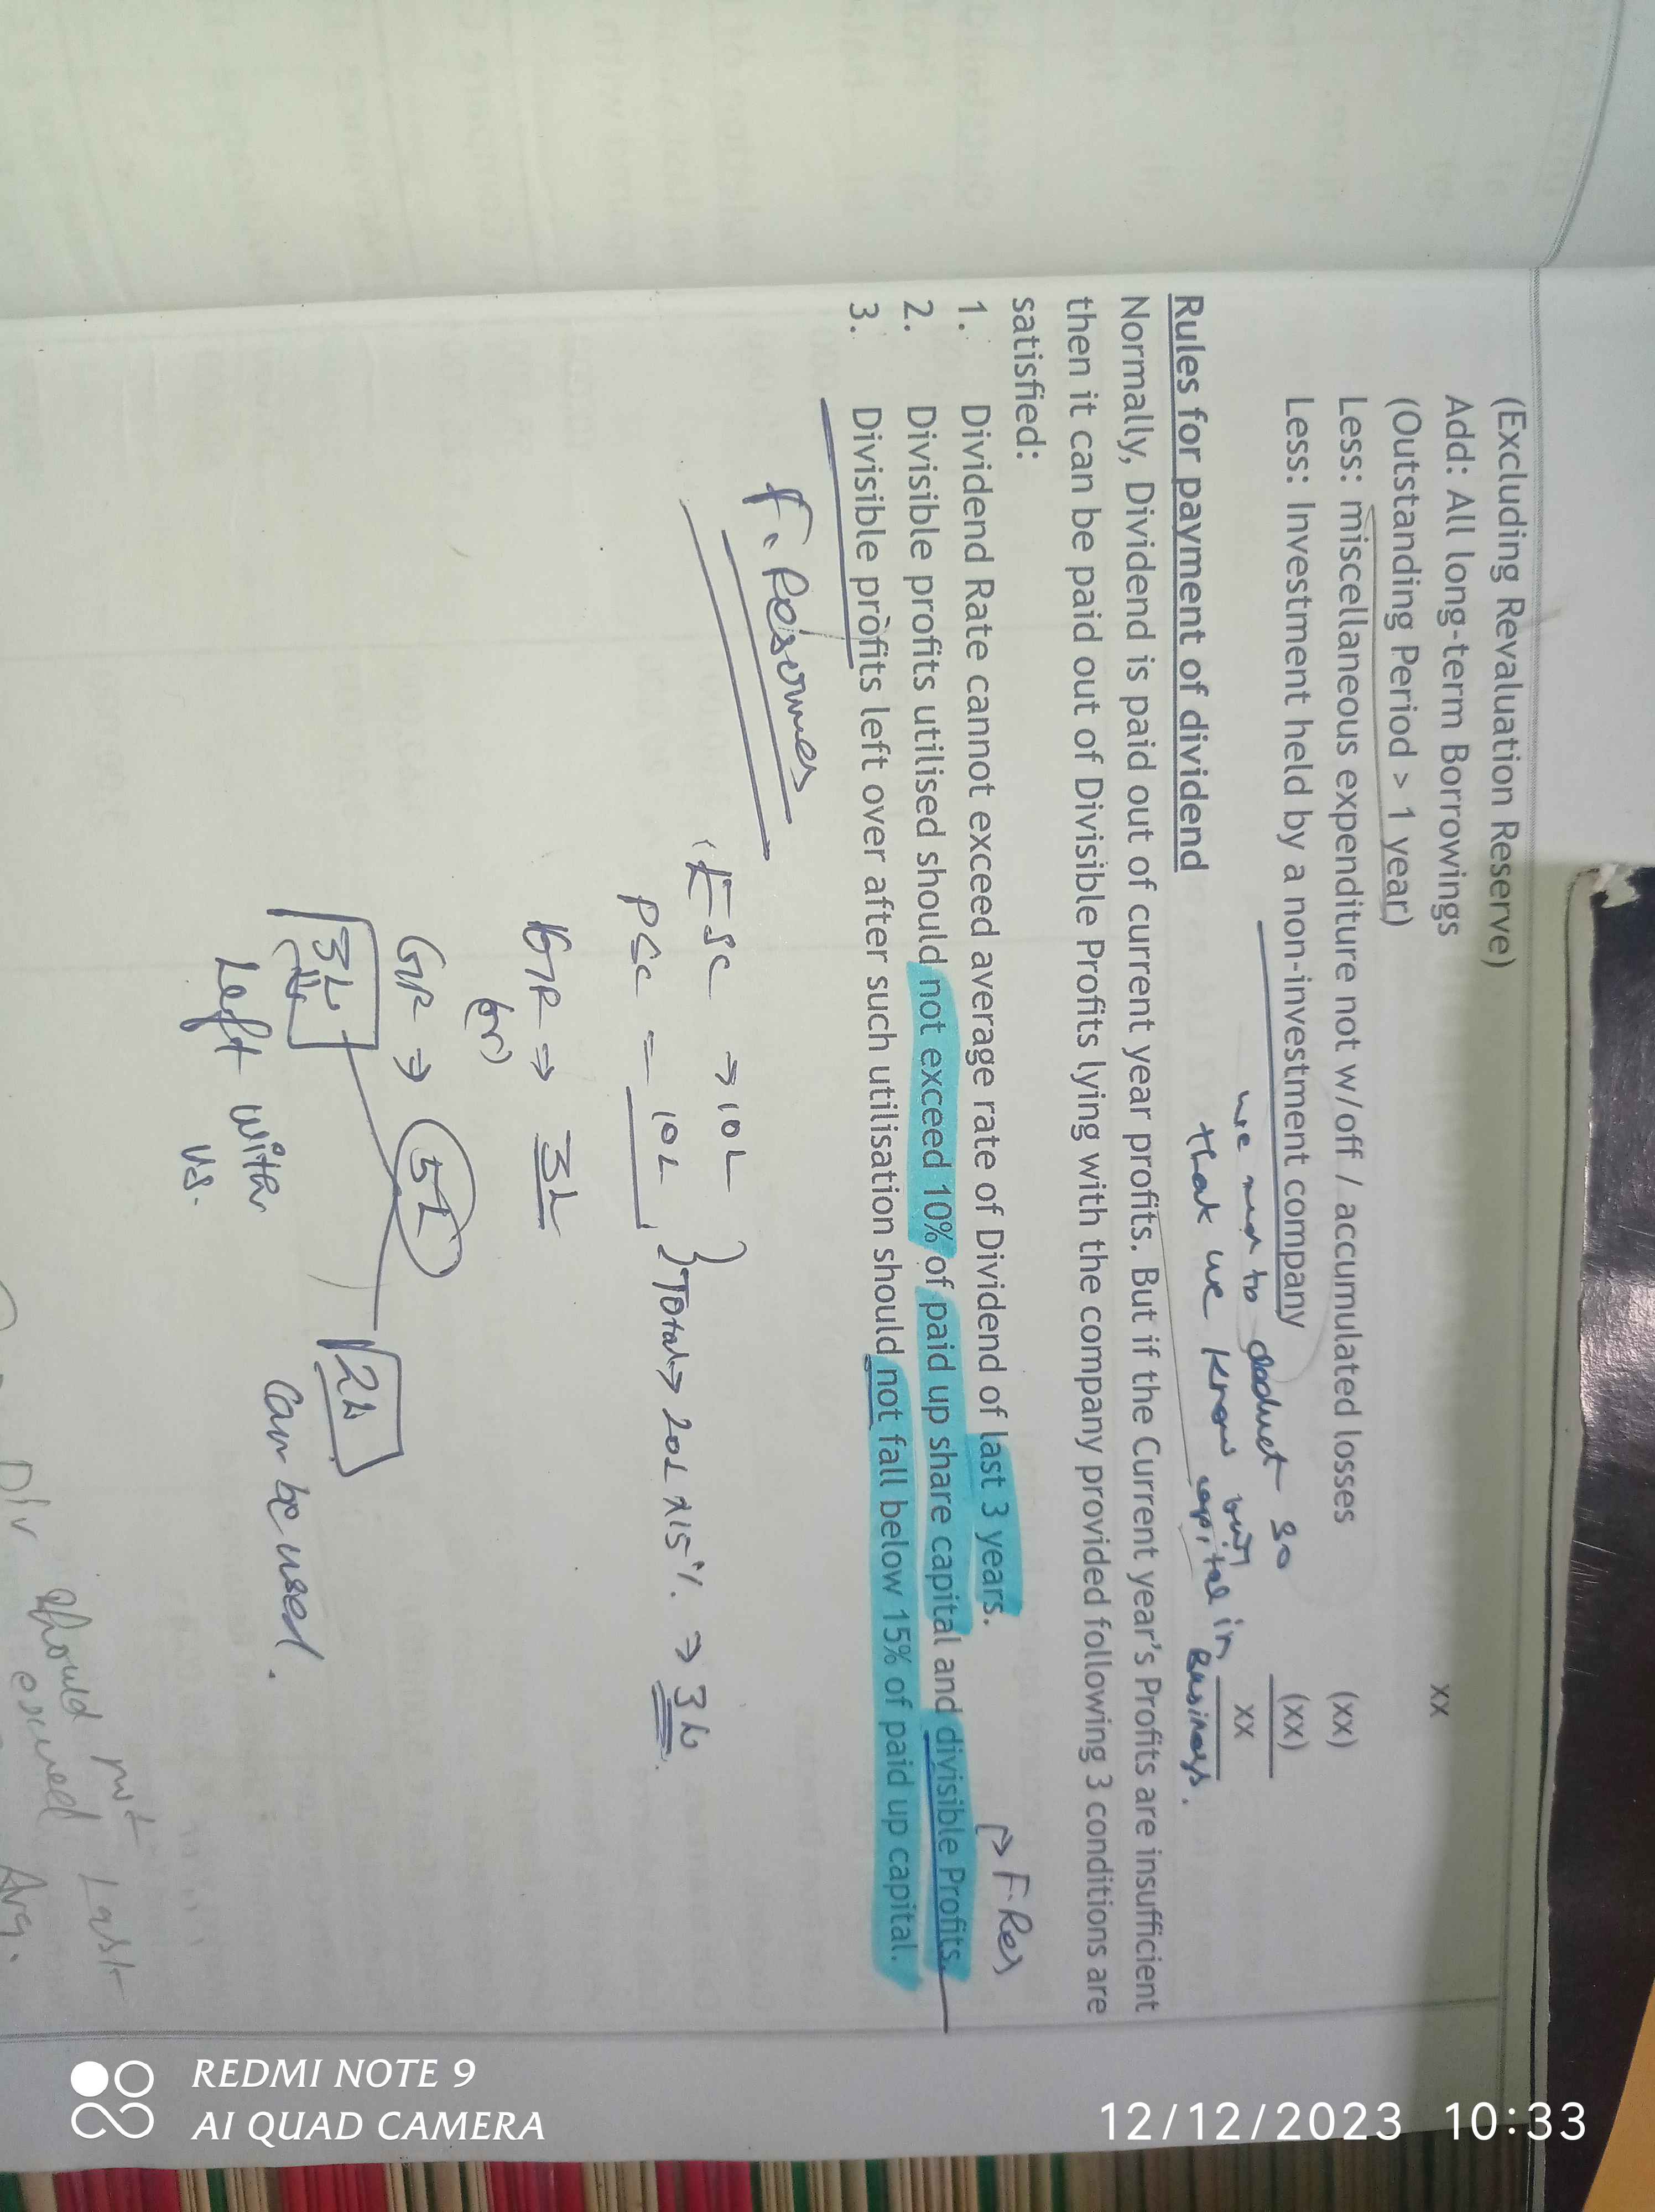 (Excluding Revaluation Reserve)
Add: All long-term Borrowings xx
(Outstanding Period > 1 year)
Less: miscellaneous expenditure not w/off / accumulated losses (xx)
Less: Investment held by a non-investment company (xx)
xx
we to deduct so
that we know our capital in Business.
Rules for payment of dividend
Normally, Dividend is paid out of current year profits. But if the Current year's Profits are insufficient
then it can be paid out of Divisible Profits lying with the company provided following 3 conditions are
satisfied:
F.Res
1. Dividend Rate cannot exceed average rate of Dividend of last 3 years.
2. Divisible profits utilised should not exceed 10% of paid up share capital and divisible Profits.
3. Divisible profits left over after such utilisation should not fall below 15% of paid up capital.
F. Reserves
ESC → 10L
PSC = 10L } Total → 20L x 15% ⇒ 3L.
GR ⇒ 3L
(or)
GR → 5L
3L 2L
Left with us. can be used.
Div should not exceed Last
Avg.
REDMI NOTE 9
AI QUAD CAMERA
12/12/2023 10:33